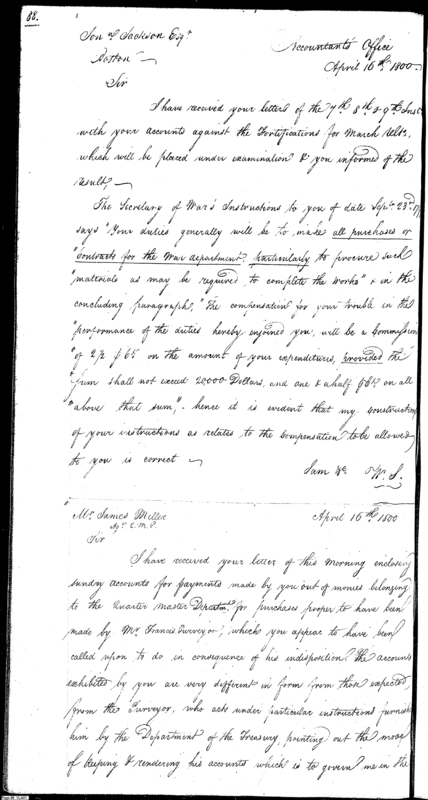 88.
Jon. Jackson Esqr.
Boston
Accountant's Office
April 16th. 1800.
Sir
I have received your letters of the 7th. 8th. & 9th. Inst.
with your accounts against the Fortifications for March Ulto.
which will be placed under examination & you informed of the
result,
The Secretary of War's Instructions to you of date Septr. 23d.
says "Your duties generally will be to make all purchases or
"contracts for the War department, particularly to procure such
"materials as may be required, to complete the works" & in the
concluding paragraph, "The compensation for your trouble in the
"performance of the duties hereby enjoined you, will be a Commission
"of 2½ p Ct. on the amount of your expenditures, provided the
"sum shall not exceed 20,000 Dollars, and one & a half p Ct. on all
"above that sum", hence it is evident that my construction
of your instructions as relates to the compensation to be allowed
to you is correct
I am &c W. S.
Mr. James Miller
Agt. Q. M. D.
April 16th. 1800
Sir
I have received your letter of this Morning enclosing
sundry accounts for payments made by you out of monies belonging
to the Quarter Master Departmt. for purchases proper to have been
made by Mr. Francis Purveyor, which you appear to have been
called upon to do in consequence of his indisposition. The accounts
exhibited by you are very different in form from those expected
from the Purveyor, who acts under particular instructions furnish
him by the Department of the Treasury, pointing out the mode
of keeping & rendering his accounts which is to govern me in the